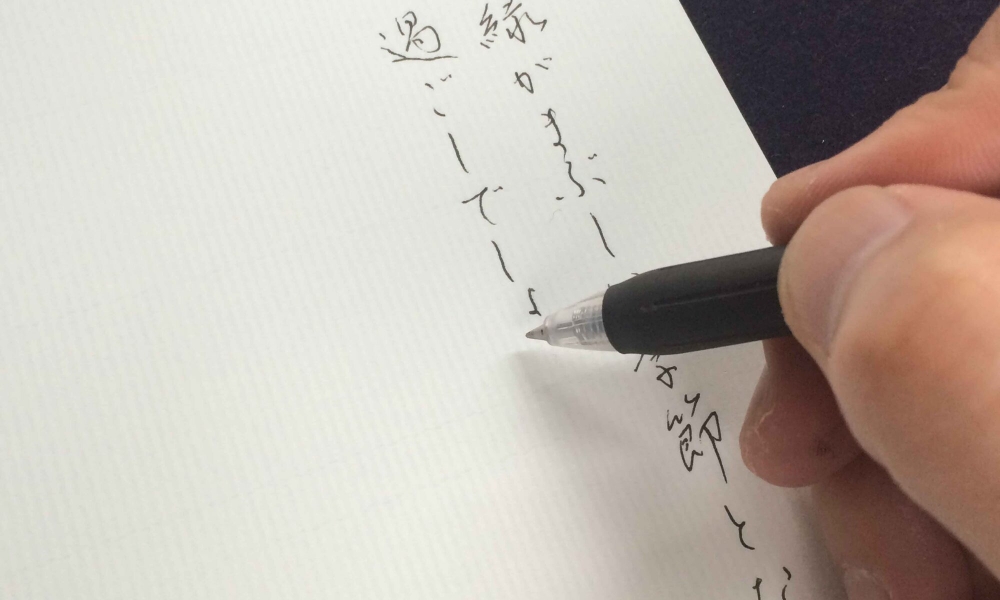 緑がまぶし季節とな
過ごしでしょ